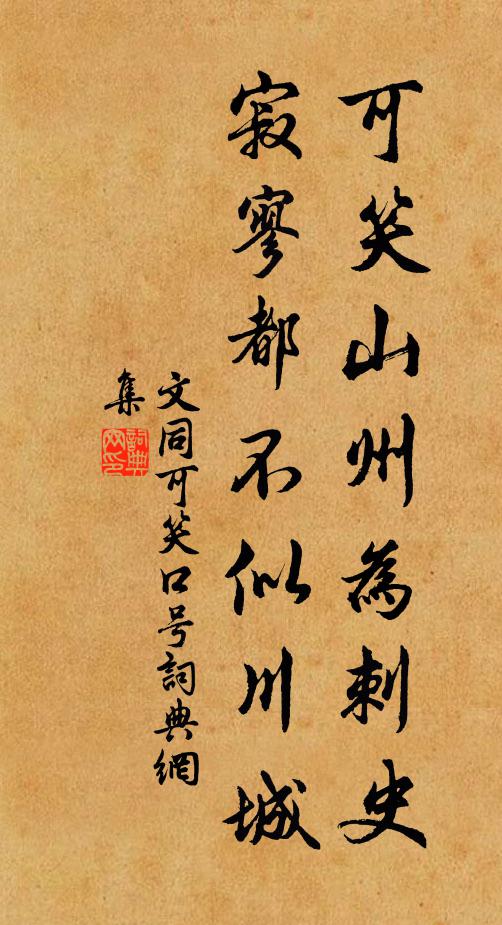 可笑山州為刺史
寂寥都不似川城
文同可笑口号詞典網
集
詞典網印